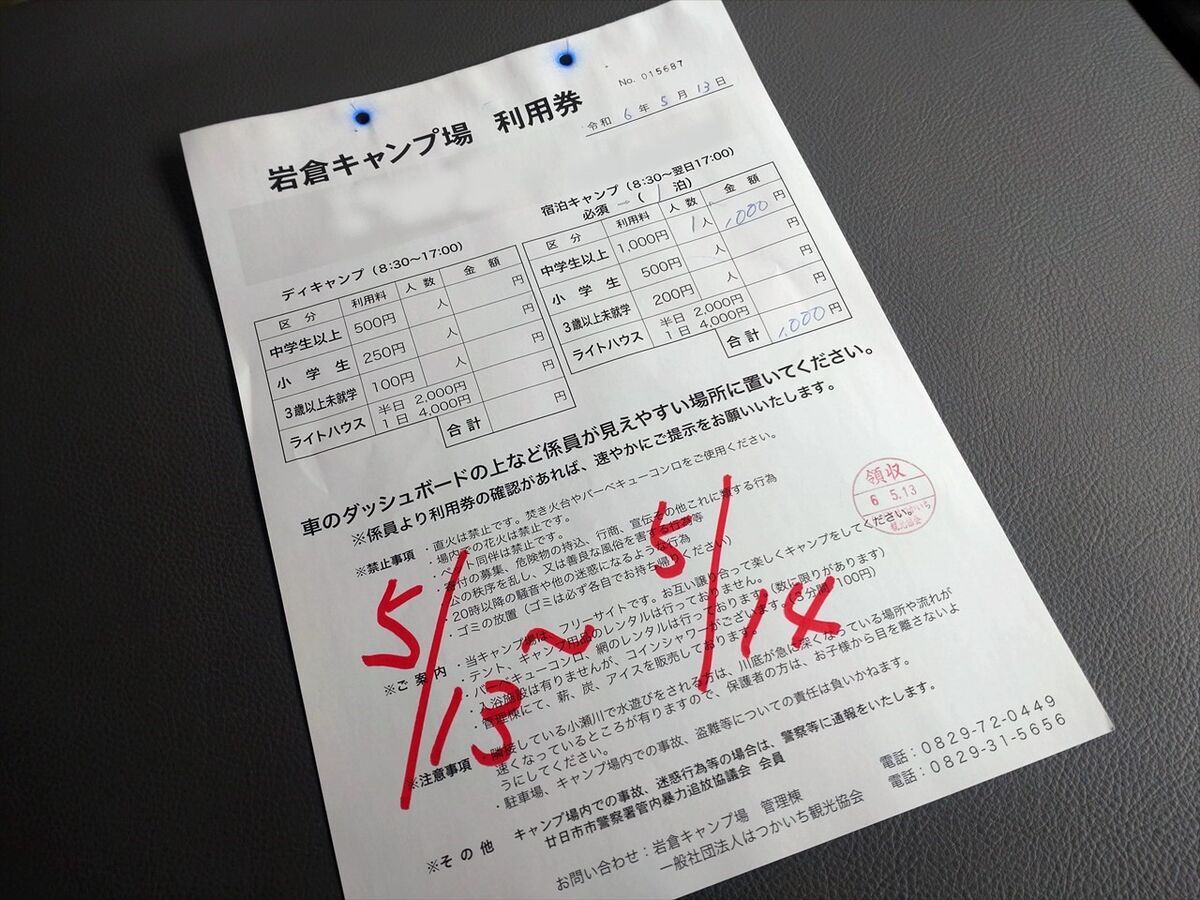 No. 015687
令和 6 年 5 月 13 日
岩倉キャンプ場 利用券
デイキャンプ (8:30～17:00)
区 分 利用料 人 数 金 額
中学生以上 500円 人 円
小 学 生 250円 人 円
3歳以上未就学 100円 人 円
ライトハウス 半日 2,000円 円
1日 4,000円
合 計 円
宿泊キャンプ (8:30～翌日17:00)
必須 → ( 1 泊)
区 分 利用料 人 数 金 額
中学生以上 1,000円 1 人 1,000 円
小 学 生 500円 人 円
3歳以上未就学 200円 人 円
ライトハウス 半日 2,000円 円
1日 4,000円
合 計 1,000 円
車のダッシュボードの上など係員が見えやすい場所に置いてください。
※係員より利用券の確認があれば、速やかにご提示をお願いいたします。
領収
6 5.13
観光協会
※禁止事項 ・直火は禁止です。焚き火台やバーベキューコンロをご使用ください。
・場内での花火は禁止です。
・ペット同伴は禁止です。
・寄付の募集、危険物の持込、行商、宣伝その他これに類する行為
・公の秩序を乱し、又は善良な風俗を害する行為等
・20時以降の騒音や他の迷惑になるような行為
・ゴミの放置(ゴミは必ず各自でお持ち帰りください)
※ご案内 ・当キャンプ場は、フリーサイトです。お互い譲り合って楽しくキャンプをしてください。
・テント、キャンプ用品のレンタルは行っておりません。
・バーベキューコンロ、網のレンタルは行っております。(数に限りがあります)
・入浴施設は有りませんが、コインシャワーがございます。(3分間 100円)
・管理棟にて、薪、炭、アイスを販売しております。
※注意事項 ・隣接している小瀬川で水遊びをされる方は、川底が急に深くなっている場所や流れが
速くなっているところが有りますので、保護者の方は、お子様から目を離さないよ
うにしてください。
・駐車場、キャンプ場内での事故、盗難等についての責任は負いかねます。
※その他 キャンプ場内での事故、迷惑行為等の場合は、警察等に通報をいたします。
廿日市市警察署管内暴力追放協議会 会員
お問い合わせ:岩倉キャンプ場 管理棟 電話:0829-72-0449
一般社団法人はつかいち観光協会 電話:0829-31-5656
5/13～5/14